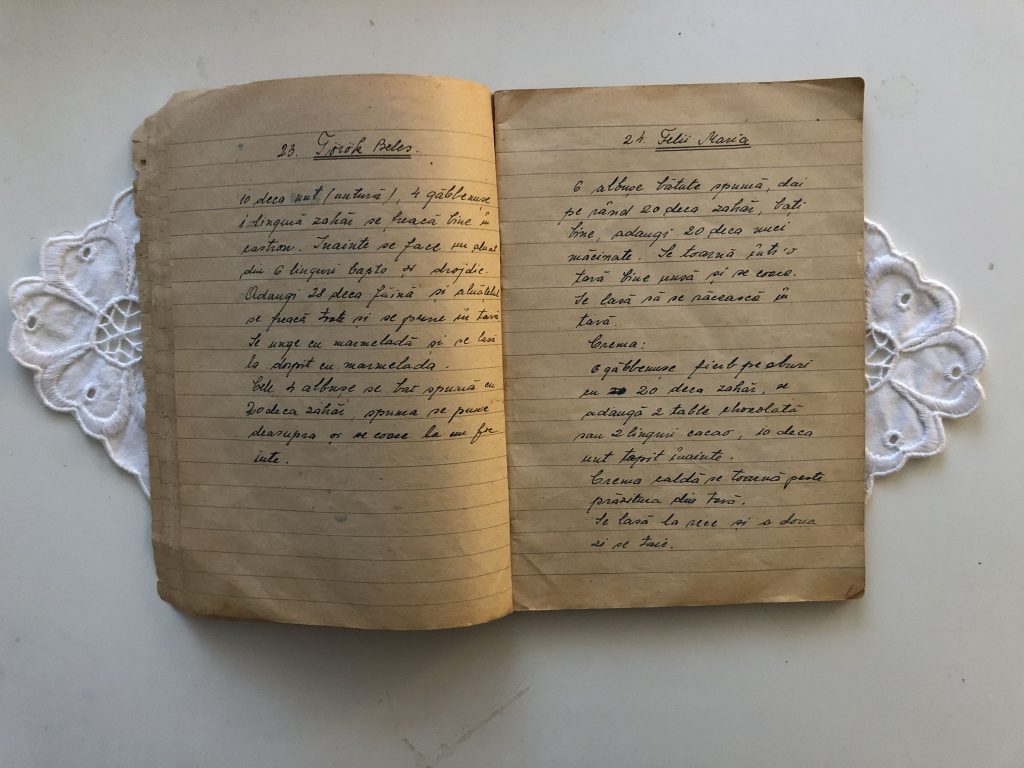 23. Török Beles.
10 deca unt (untură), 4 găbbenușe
1 lingură zahăr se freacă bine în
castron. Inainte se face un aluat
din 6 linguri lapte și drojdie.
Adaugi 28 deca făină și aluatelul
se freacă toate și se pune în tavă
Se unge cu marmeladă și se lasă
la dospit cu marmeladă.
Cele 4 albușe se bat spumă cu
20 deca zahăr, spuma se pune
deasupra și se coace la un foc
iute.
24. Felii Maria
6 albușe bătute spumă, dai
pe rând 20 deca zahăr, bați
bine, adaugi 20 deca nuci
macinate. Se toarnă într'o
tavă bine unsă și se coace.
Se lasă să se racească în
tavă.
Crema:
6 găbbenușe fierb pe aburi
cu 20 deca zahăr, se
adaugă 2 table chocolată
sau 2 linguri cacao, 10 deca
unt topit înainte.
Crema caldă se toarnă peste
prăzitura din tavă.
Se lasă la rece și a doua
zi se taie.